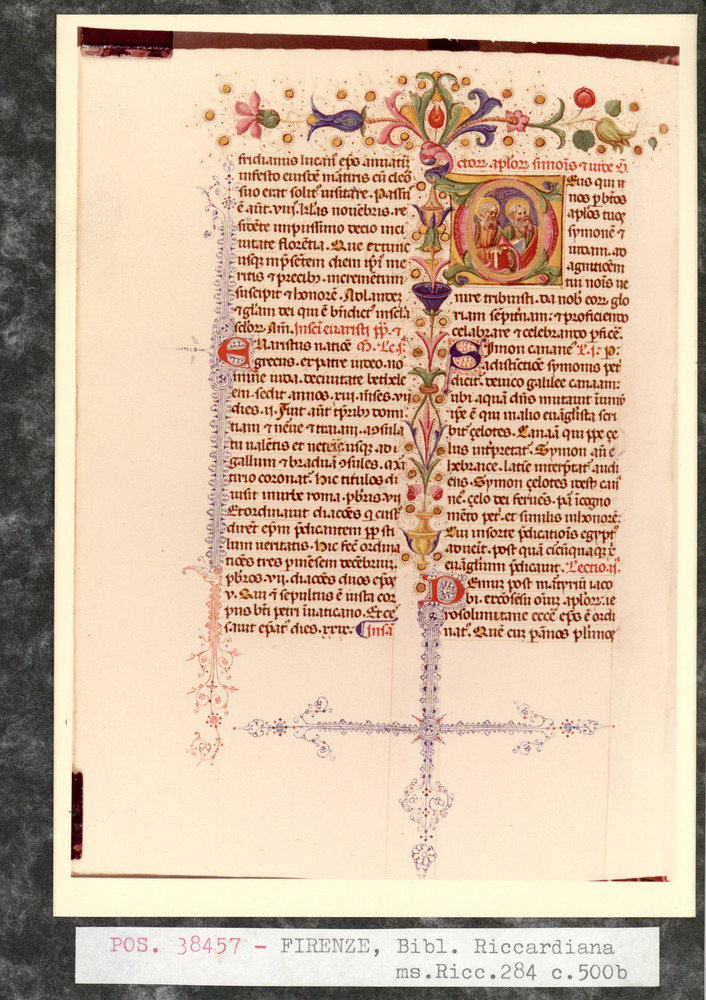 fridianus lucan epo
infesto eiusde martiris cu
suo erat solit uisitare. Passu
e aut. viij. kalas nouebris. re
inpiissimo decio
uitate florētia. Que ex tunc
usq; in psētem diem ipi me
ritis & precib; incrementum
suscipit & honorē. Ad laudez
& glam dei qui ē bndict in scla
sclor. Am. In sci euaristi pp. &
Euaristus natiōe m. Lc. j.
grecus. ex patre iudeo. no
mine iuda. de ciuitate bethele
em. sedit annos. xiii. mēses. vij
dies. ij. Fuit aut tpribz domi
tiani & neruę & traiani. a
ualētis et ueteris. usq; ad
gallum & braduā cōsules.
tirio coronat. Hic titulos di
uisit in urbe roma. pbris. vij
Et ordinauit diacōes q cust
dirēt epm pdicantem pp sti
lum ueritatis. Hic fec ordina
tiōes tres p mēsem decēbrium.
pbros. vij. diacōes duos epōs
v. Qui & sepultus ē iuxta cor
pus bti petri i uaticano. Et ce
sauit epat dies. xix. In sca
ctorz. aplorz simōis & iude
Deus qui u
nos p btos
aplos tuos
symonē &
iudam. ad
agnitiōem
tui nōis ue
nire tribuisti. da nob eorz glo
riam sepiternam. & proficiendo
celebrare & celebrando pficē.
Simon canane L. j. p.
ad distictiōe symonis pet
dicit. de uico galilee canaam.
ubi aquā dns mutauit ī uinu
ipe ē qui in alio euāglista scri
bit celotes. Canaā qui ppe çe
lus intpretat. Symon aut e
hebraice. latie interptat audi
ens. Symon çelotes
çelo dei feruēs. pari cogno
mēto pet. et similis in honore.
Qui in sorte pdicatiōis egypti
adueit. post quā
euāglium pdicauit. Lectio. ij.
Demuz post martyriu iaco
bi. ex cōsēsu oīuz aplorz. ie
rosolimitane eccē epo ē ordi
nat. Quē cuz p ānos plimos
POS. 38457 - FIRENZE, Bibl. Riccardiana
ms.Ricc.284 c.500b